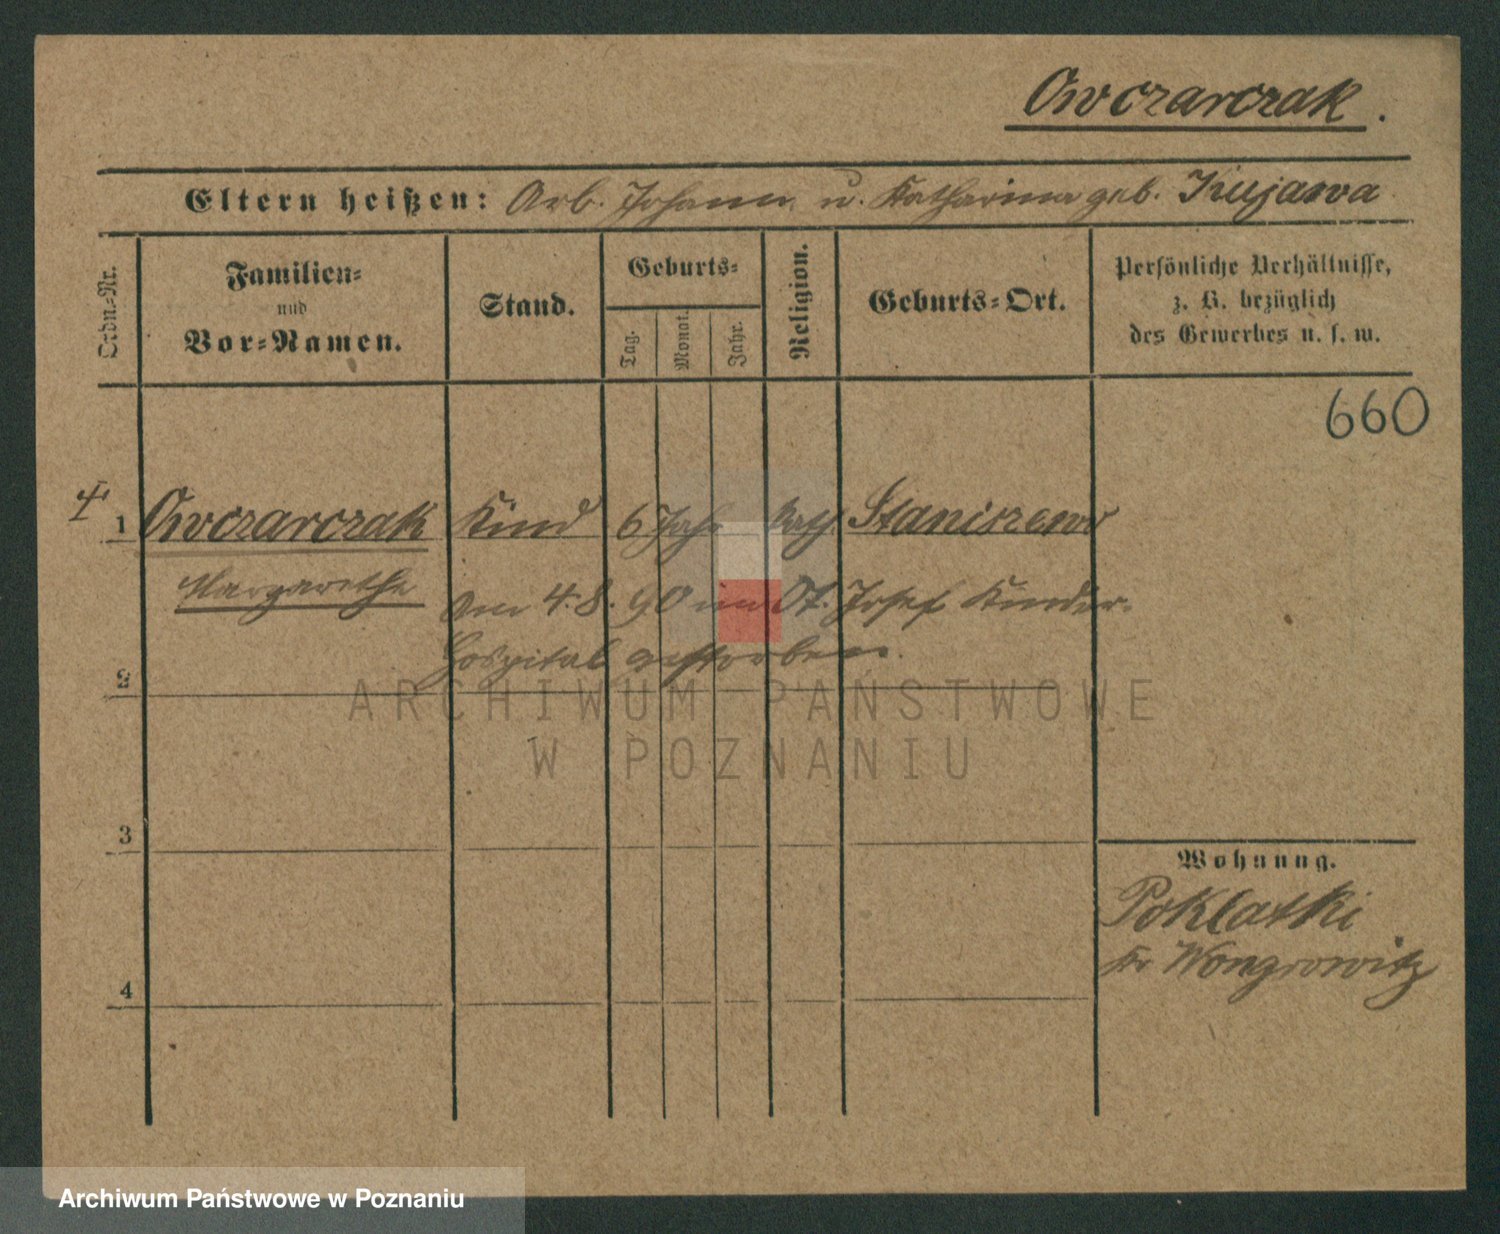 Owczarczak.
Eltern heißen: Arb. Johann u. Katharina geb. Kujawa
Ordn.-Nr.
Familien-
und
Vor-Namen.
Stand.
Geburts-
Tag.
Monat.
Jahr.
Religion.
Geburts-Ort.
Persönliche Verhältnisse,
z. B. bezüglich
des Gewerbes u. s. w.
660
1 Owczarczak Kind 6 Jahr kath. Staniszewo
Margarethe
Am 4.8.90 im St. Josef Kinder-
Hospital gestorben.
2
3
4
Wohnung.
Poklatki
Kr Wongrowitz
ARCHIWUM PAŃSTWOWE
W POZNANIU
Archiwum Państwowe w Poznaniu